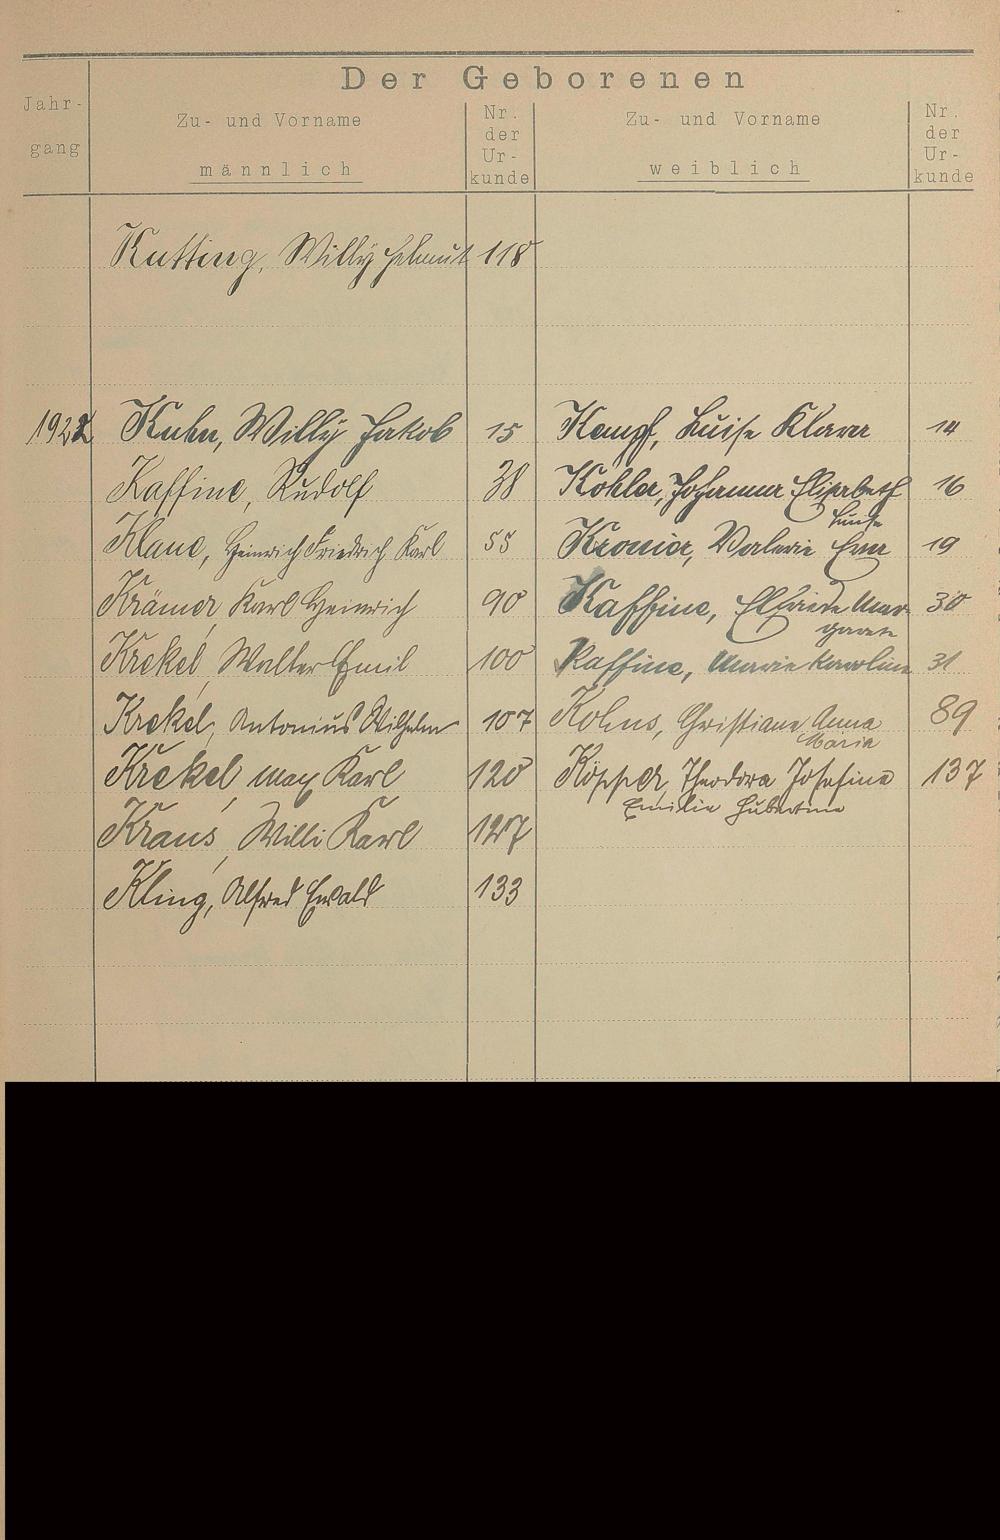 Der Geborenen
Jahr-
gang
Zu- und Vorname
männlich
Nr.
der
Ur-
kunde
Zu- und Vorname
weiblich
Nr.
der
Ur-
kunde
Kutting, Willy Helmut 118
1922 Kuhn, Willy Jakob 15 Kempf, Luise Klara 14
Kaffine, Rudolf 38 Köhler, Johanna Elisabeth 16
Luise
Klaue, Heinrich Friedrich Karl 55 Kronier, Valerie Erna 19
Krämer, Karl Heinrich 90 Kaffine, Elfriede Mar- 30
garete
Krekel, Walter Emil 100 Kaffine, Marie Karoline 31
Krekel, Antonius Wilhelm 107 Kohns, Christiane Anna 89
Maria
Krekel Max Karl 120 Köpper, Theodora Josefine 137
Emilie Hubertine
Kraus, Willi Karl 127
Kling, Alfred Ewald 133